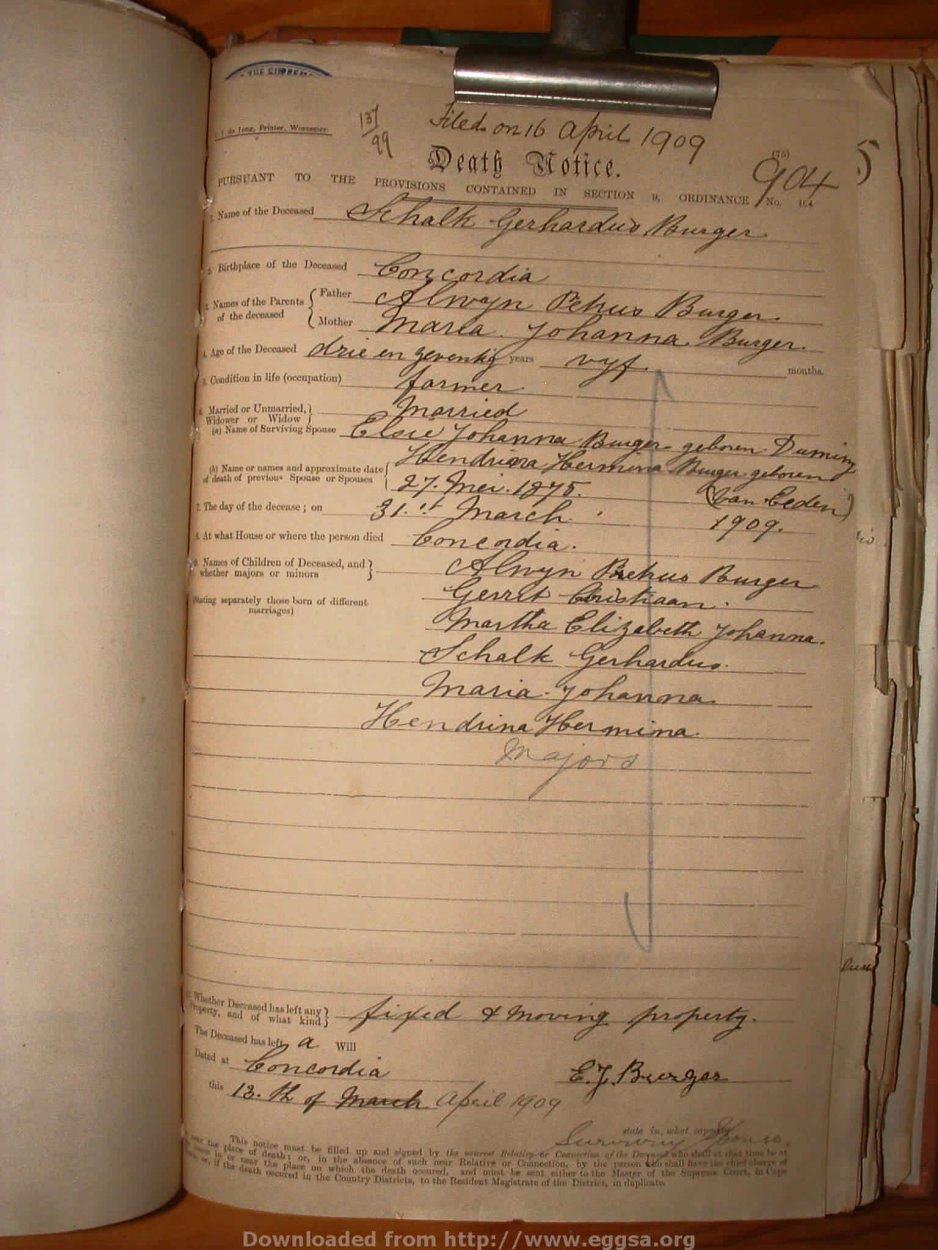 THE SUPREM
de Jong, Printer, Worcester.
137/99
Filed on 16 April 1909
5
Death Notice.
(75)
904
PURSUANT TO THE PROVISIONS CONTAINED IN SECTION 9, ORDINANCE No. 104
1. Name of the Deceased Schalk Gerhardus Burger
2. Birthplace of the Deceased Concordia
3. Names of the Parents of the deceased { Father Alwyn Petrus Burger
Mother Maria Johanna Burger.
4. Age of the Deceased drie en zeventig years vyf months.
5. Condition in life (occupation) farmer
6. Married or Unmarried, Widower or Widow } Married
(a) Name of Surviving Spouse Elsie Johanna Burger geboren Duminy
(b) Name or names and approximate date of death of previous Spouse or Spouses { Hendrina Hermina Burger geboren
27. Mei. 1875. (van Eeden)
7. The day of the decease; on 31.st March 1909.
8. At what House or where the person died Concordia.
9. Names of Children of Deceased, and whether majors or minors } Alwyn Petrus Burger
(Stating separately those born of different marriages) Gerrit Christiaan.
Martha Elizabeth Johanna.
Schalk Gerhardus.
Maria Johanna
Hendrina Hermina.
Majors
Whether Deceased has left any Property, and of what kind } fixed & moving property.
The Deceased has left a Will
Dated at Concordia E. J. Burger
this 13.th of March April 1909
state in what capacity
Surviving Spouse.
This notice must be filled up and signed by the nearest Relative or Connection of the Deceased who shall at that time be at
or near the place of death; or, in the absence of such near Relative or Connection, by the person who shall have the chief charge of
in or near the place on which the death occured, and must be sent either to the Master of the Supreme Court, in Cape
or, if the death occured in the Country Districts, to the Resident Magistrate of the District, in duplicate.
Downloaded from http://www.eggsa.org